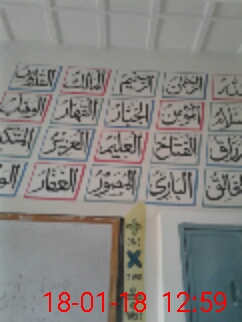 الله الرحمن الرحيم المالك القدوس
السلام المؤمن الجبار القهار الوهاب
الرزاق الفتاح العليم العزيز المتكبر
الخالق البارئ المصور الغفار
18-01-18 12:59